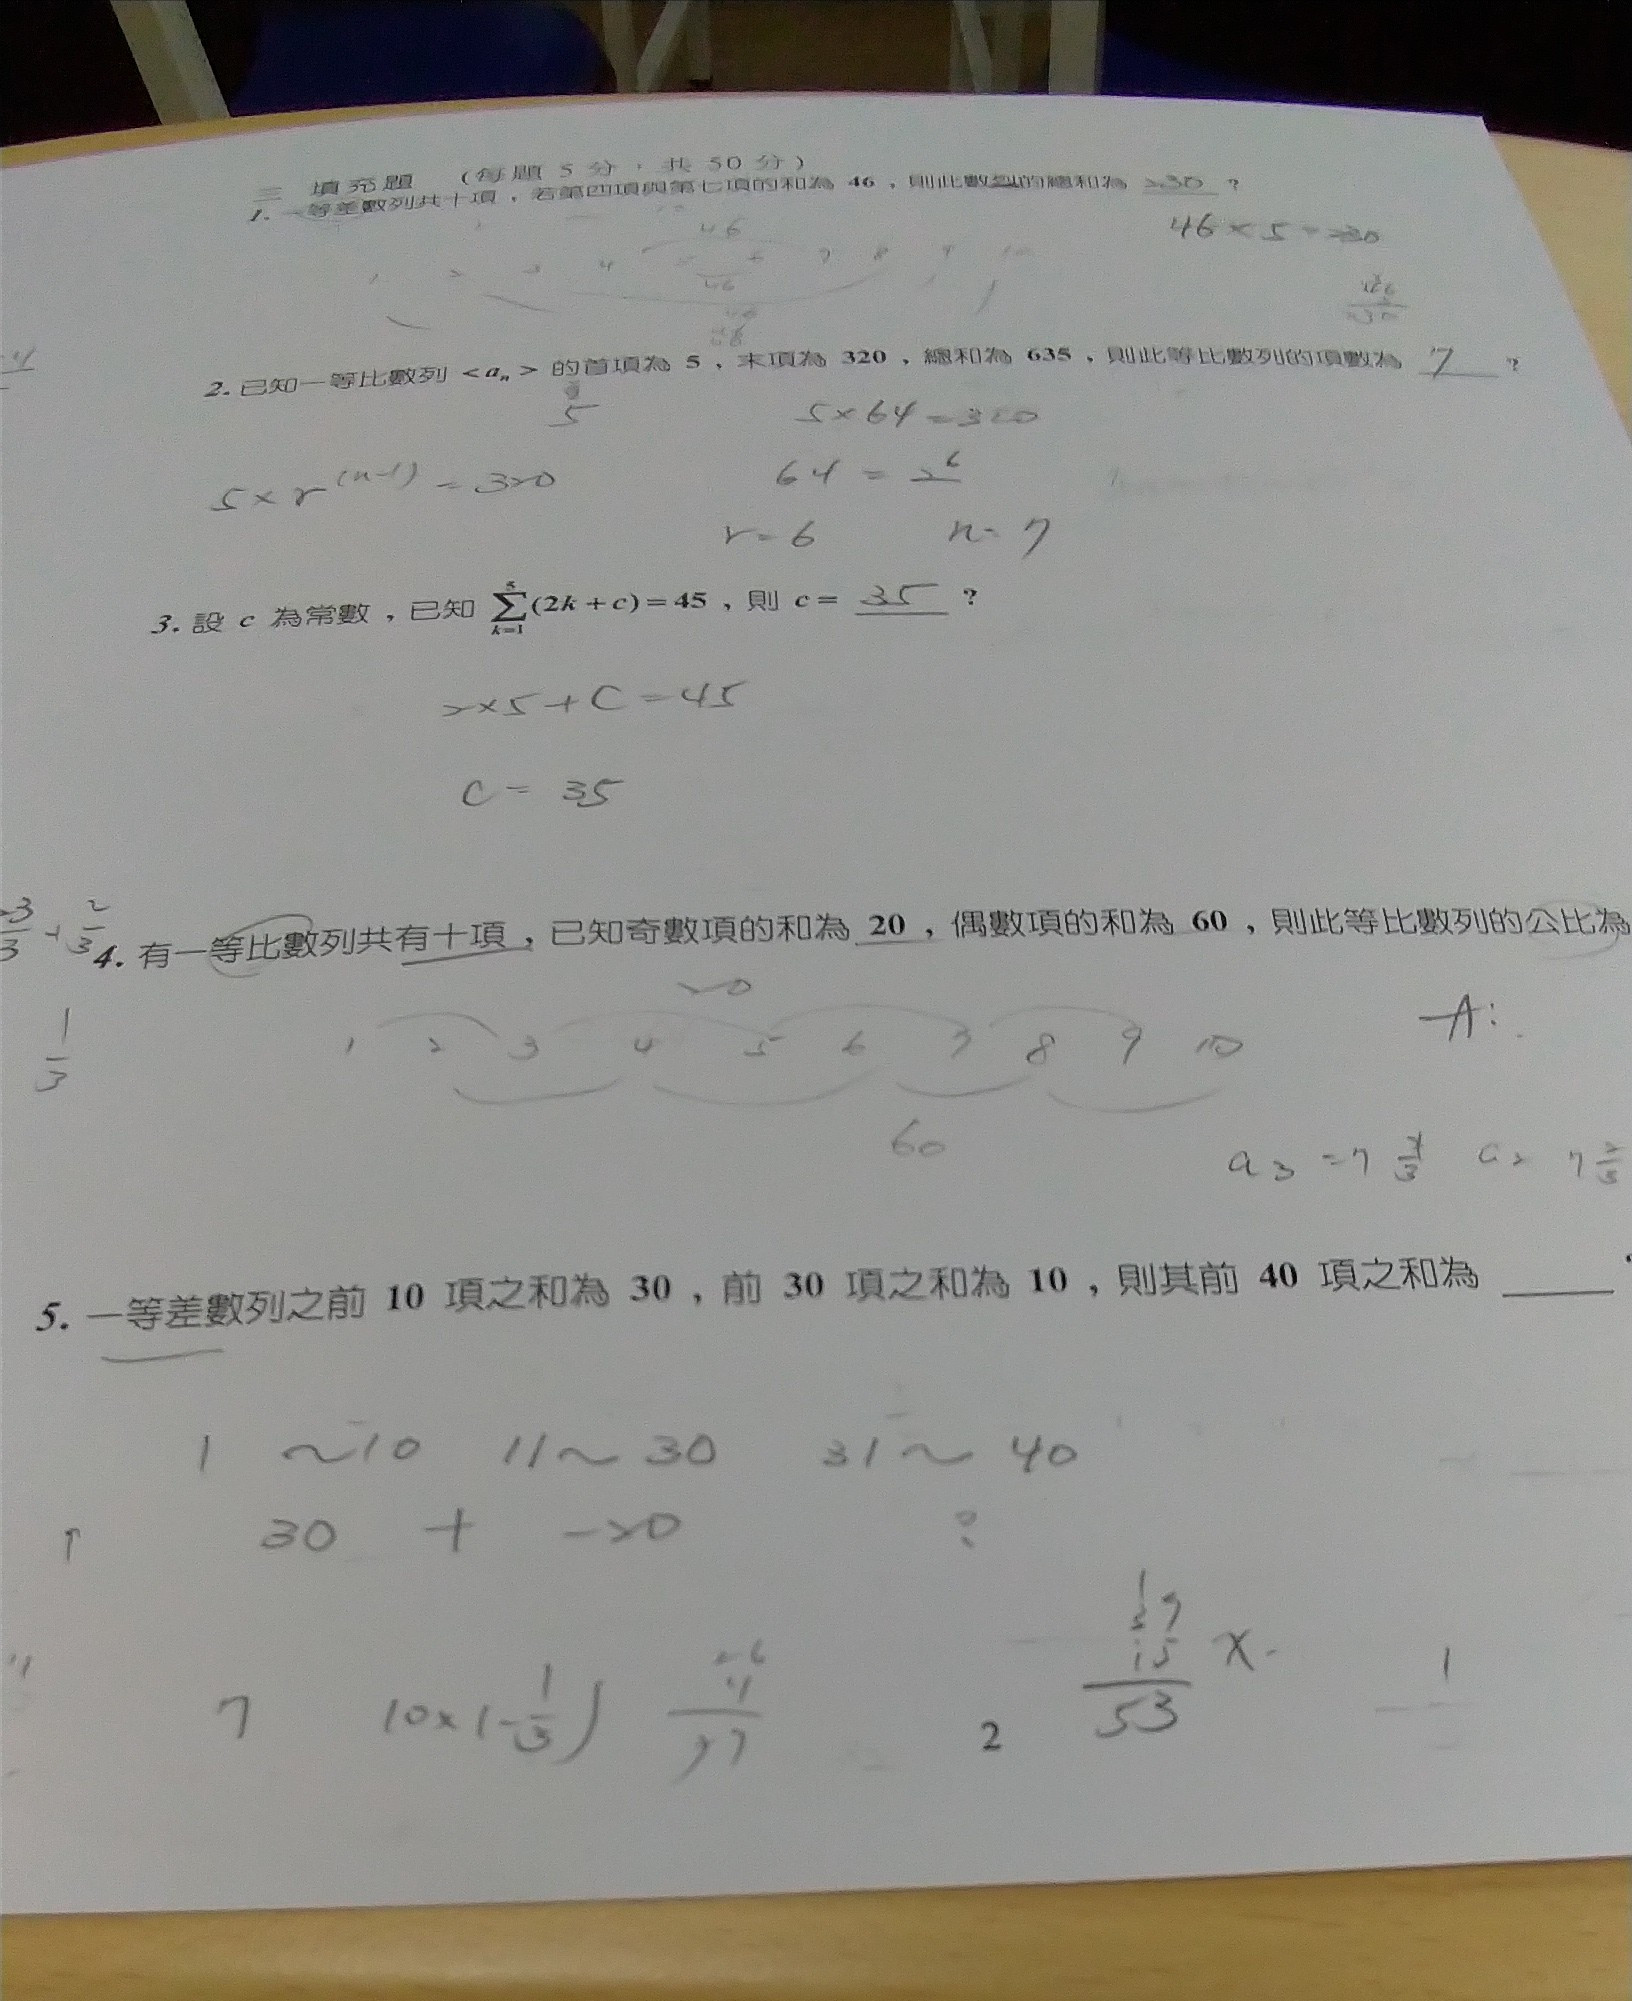 三 填充題 (每題 5 分，共 50 分)
1. 一等差數列共十項，若第四項與第七項的和為 46，則此數列的總和為 230 ?
46 × 5 = 230
46
1 2 3 4 5 6 7 8 9 10
46
2. 已知一等比數列 <aₙ> 的首項為 5，末項為 320，總和為 635，則此等比數列的項數為 7 ?
5
5×64=320
5×r^(n-1) = 320
64 = 2^6
r=6 n=7
3. 設 c 為常數，已知 \sum_{k=1}^{5}(2k+c)=45，則 c= 35 ?
2×5+C=45
C = 35
4. 有一等比數列共有十項，已知奇數項的和為 20，偶數項的和為 60，則此等比數列的公比為
20
1/3
1 2 3 4 5 6 7 8 9 10
A:
60
5. 一等差數列之前 10 項之和為 30，前 30 項之和為 10，則其前 40 項之和為
1 ~10 11~30 31~40
30 + -20 ?
7
10×1-1/3)
53
x
2
1